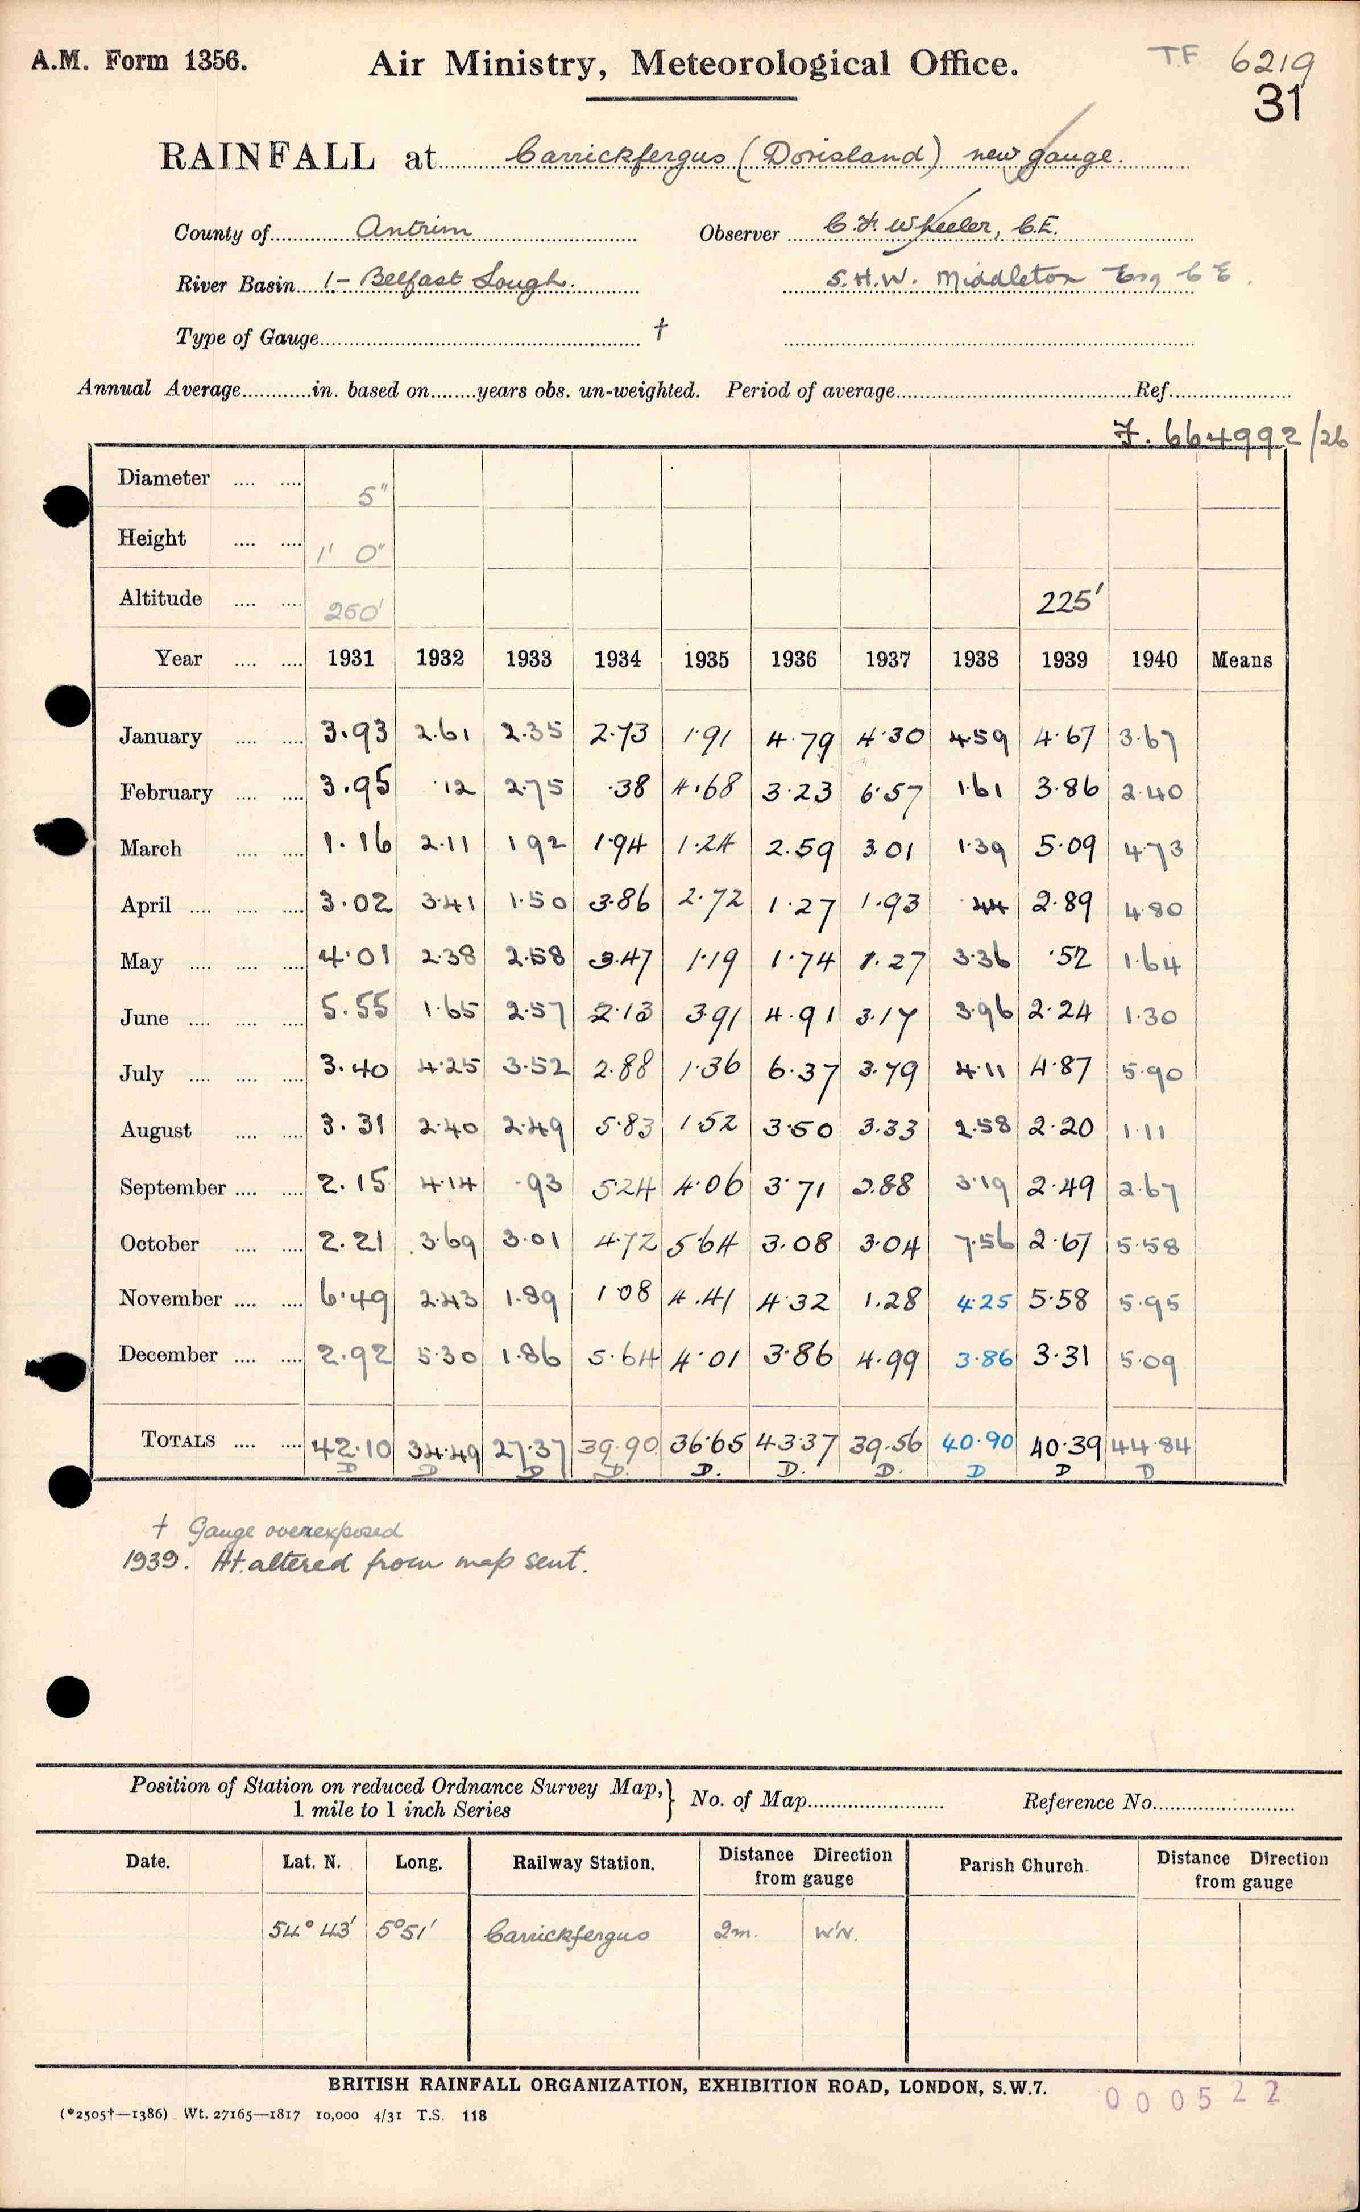 A.M. Form 1356. Air Ministry, Meteorological Office. T.F 6219
31
RAINFALL at Carrickfergus (Dorisland) new gauge.
County of Antrim Observer C. F. Wheeler, C.E.
River Basin 1 - Belfast Lough. S. H. W. Middleton Esq C E.
Type of Gauge †
Annual Average in. based on years obs. un-weighted. Period of average Ref.
J. 664992/26
Diameter 5"
Height 1' 0"
Altitude 250' 225'
Year 1931 1932 1933 1934 1935 1936 1937 1938 1939 1940 Means
January 3.93 2.61 2.35 2.73 1.91 4.79 4.30 4.59 4.67 3.67
February 3.95 .12 2.75 .38 4.68 3.23 6.57 1.61 3.86 2.40
March 1.16 2.11 1.92 1.94 1.24 2.59 3.01 1.39 5.09 4.73
April 3.02 3.41 1.50 3.86 2.72 1.27 1.93 .44 2.89 4.80
May 4.01 2.38 2.58 3.47 1.19 1.74 1.27 3.36 .52 1.64
June 5.55 1.65 2.57 2.13 3.91 4.91 3.17 3.96 2.24 1.30
July 3.40 4.25 3.52 2.88 1.36 6.37 3.79 4.11 4.87 5.90
August 3.31 2.40 2.49 5.83 1.52 3.50 3.33 2.58 2.20 1.11
September 2.15 4.14 .93 5.24 4.06 3.71 2.88 3.19 2.49 2.67
October 2.21 3.69 3.01 4.72 5.64 3.08 3.04 7.56 2.67 5.58
November 6.49 2.43 1.89 1.08 4.41 4.32 1.28 4.25 5.58 5.95
December 2.92 5.30 1.86 5.64 4.01 3.86 4.99 3.86 3.31 5.09
TOTALS 42.10 34.49 27.37 39.90 36.65 43.37 39.56 40.90 40.39 44.84
D D D D. D. D. D. D D D
† Gauge overexposed
1939. Ht. altered from map sent.
Position of Station on reduced Ordnance Survey Map, 1 mile to 1 inch Series } No. of Map Reference No.
Date. Lat. N. Long. Railway Station. Distance Direction from gauge Parish Church. Distance Direction from gauge
54° 43' 5°51' Carrickfergus 2m. W'N.
BRITISH RAINFALL ORGANIZATION, EXHIBITION ROAD, LONDON, S.W.7. 000522
(*2505†—1386) Wt. 27165—1817 10,000 4/31 T.S. 118